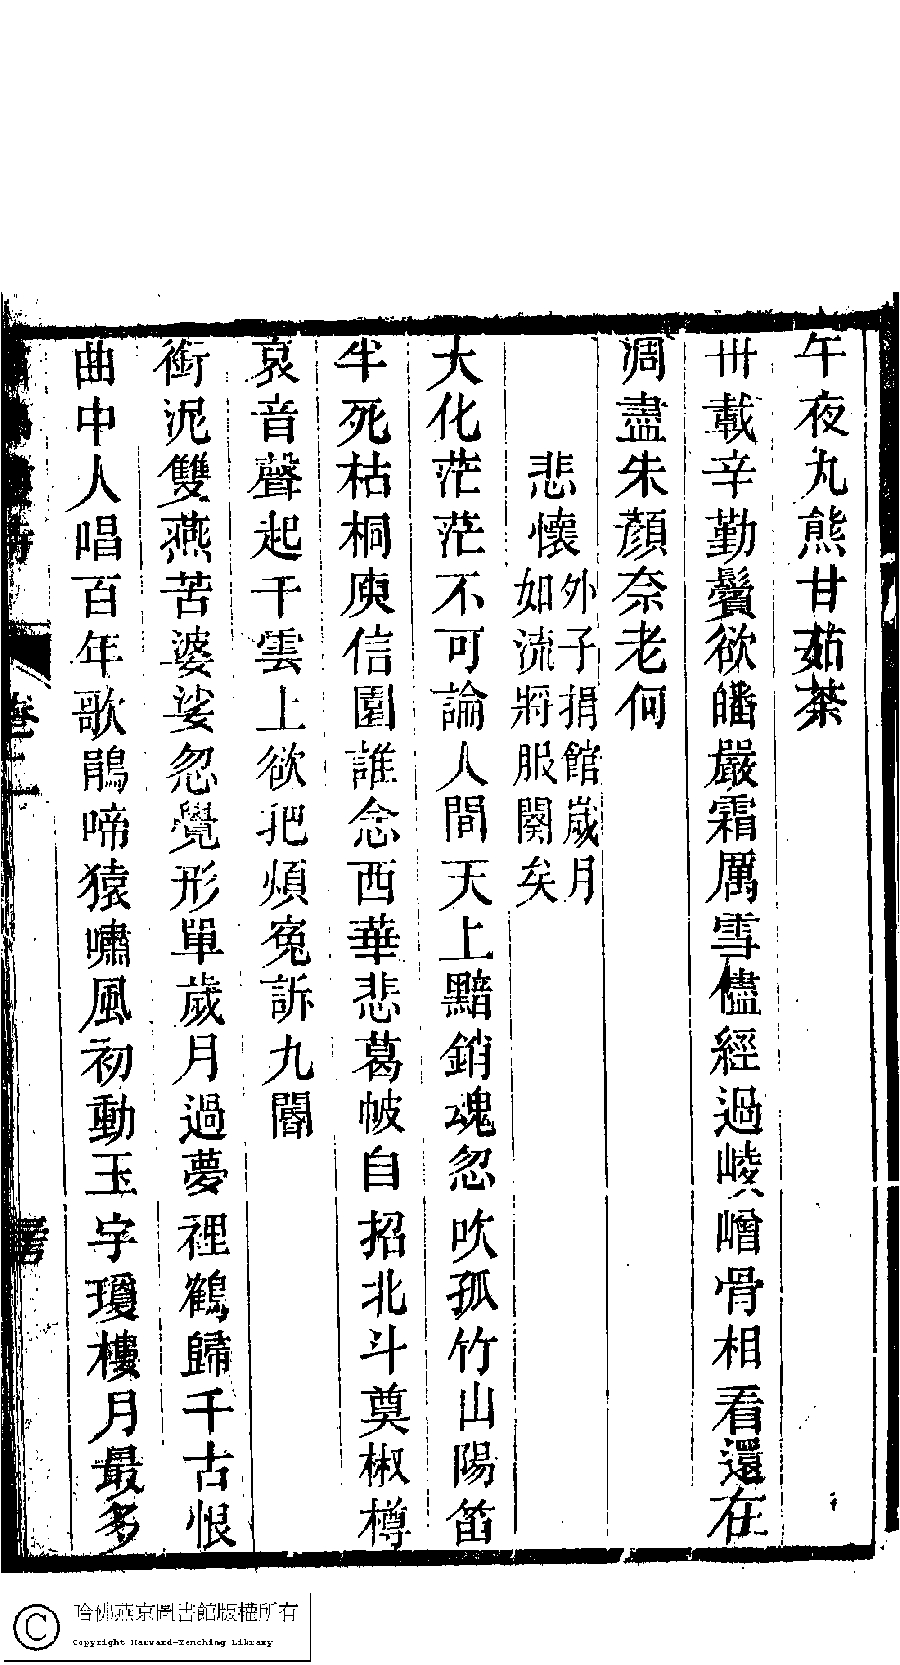 午夜丸熊甘茹荼
卅載辛勤鬢欲皤嚴霜厲雪儘經過崚嶒骨相看還在
凋盡朱顏奈老何
悲懷
外子捐館歲月
如流將服闋矣
大化茫茫不可論人間天上黯銷魂忽吹孤竹山陽笛
半死枯桐庾信園誰念西華悲葛帔自招北斗奠椒樽
哀音聲起干雲上欲把煩寃訴九閽
銜泥雙燕苦婆娑忽覺形單歲月過夢裡鶴歸千古恨
曲中人唱百年歌鵑啼猿嘯風初動玉宇瓊樓月最多
卷一
哈佛燕京圖書館版權所有
Copyright Harvard-Yenching Library